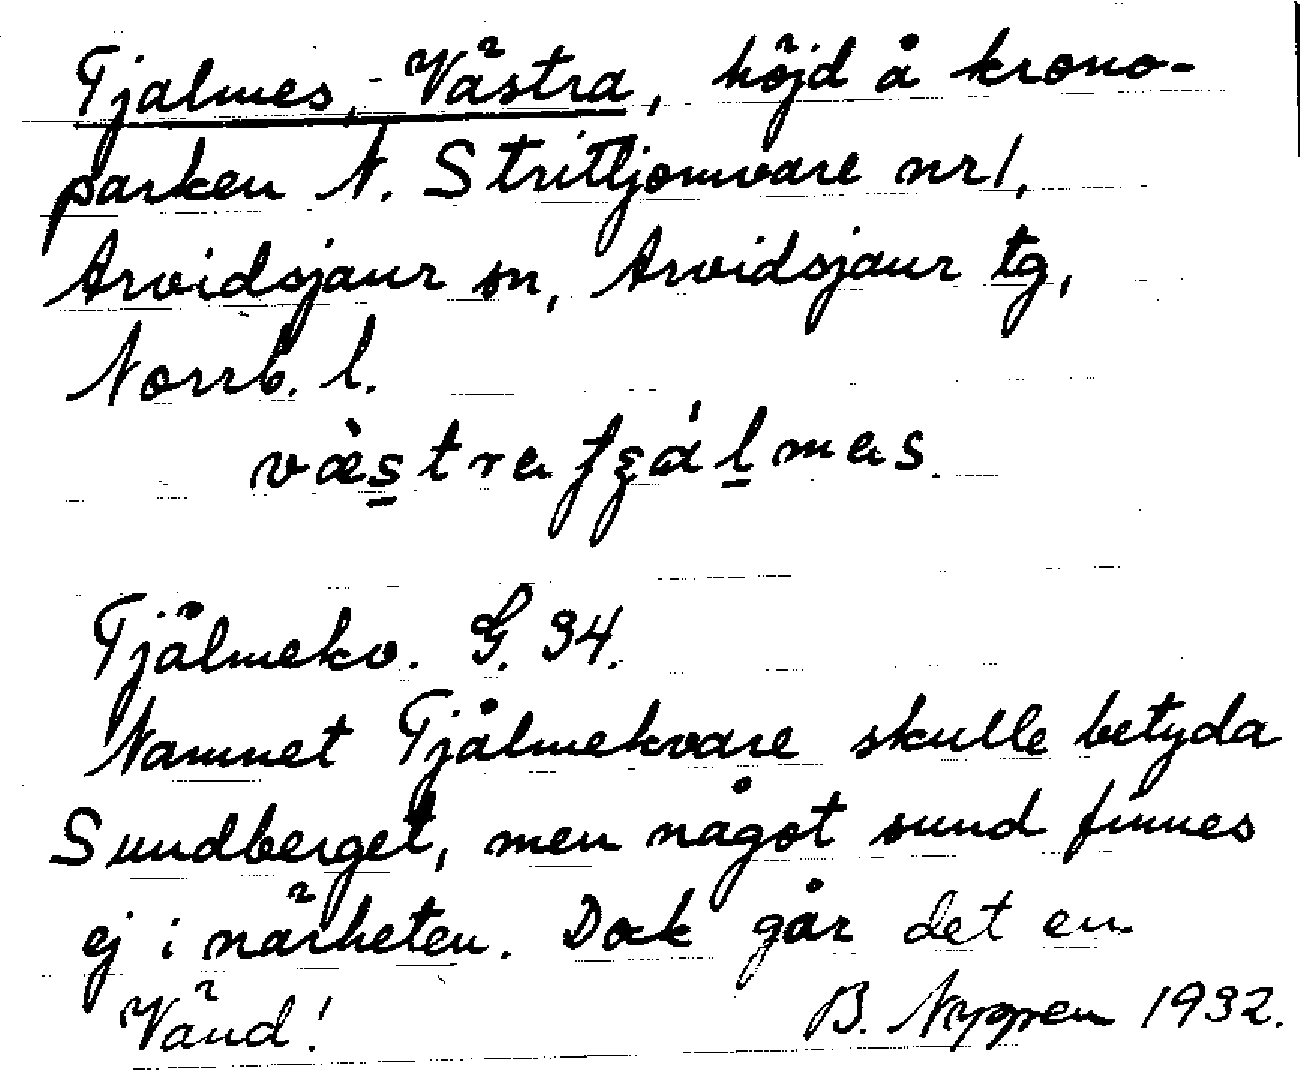 Tjalmes, Västra, höjd å krono-
parken N. Stritljomvare nr 1,
Arvidsjaur sn, Arvidsjaur tg,
Norrb. l.
Tjälmekv. G. 34.
Namnet Tjålmekvare skulle betyda
Sundberget, men något sund finnes
ej i närheten. Dock går det en
Vänd! B. Nyppen 1932.